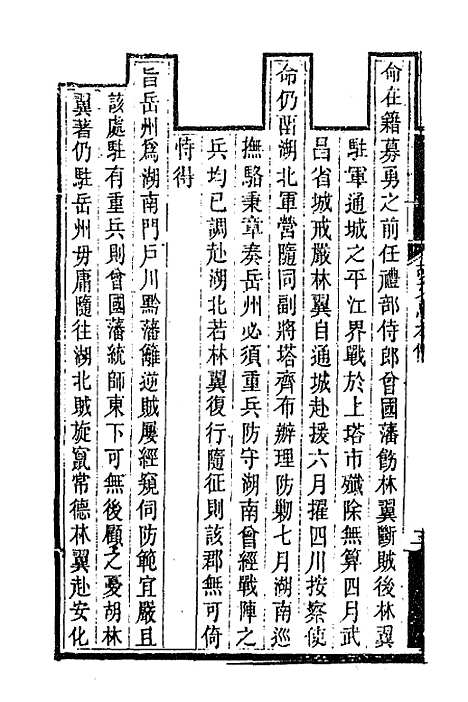 命在籍募勇之前任禮部侍郎曾國藩飭林翼斷賊後林翼
駐軍通城之平江界戰於上塔市殲除無算四月武
昌省城戒嚴林翼自通城赴援六月擢四川按察使
命仍留湖北軍營隨同副將塔齊布辦理防勦七月湖南巡
撫駱秉章奏岳州必須重兵防守湖南曾經戰陣之
兵均已調赴湖北若林翼復行隨征則該郡無可倚
恃得
旨岳州爲湖南門戶川黔藩籬逆賊屢經窺伺防範宜嚴且
該處駐有重兵則曾國藩統師東下可無後顧之憂胡林
翼著仍駐岳州毋庸隨往湖北賊旋竄常德林翼赴安化